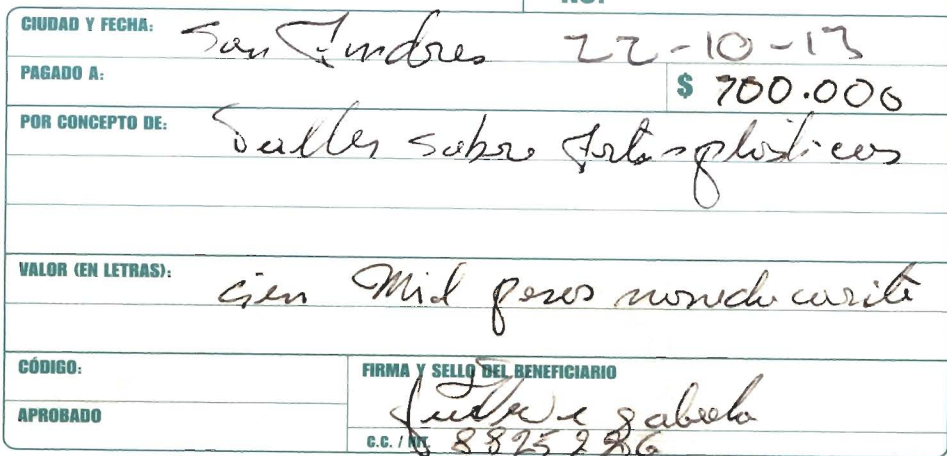 NO.
CIUDAD Y FECHA: San Andres 22-10-13
PAGADO A:
$ 100.000
POR CONCEPTO DE: Taller sobre Artes plásticas
VALOR (EN LETRAS):
cien Mil pesos moneda corriente
CÓDIGO:
FIRMA Y SELLO DEL BENEFICIARIO
APROBADO
C.C. / NIT.